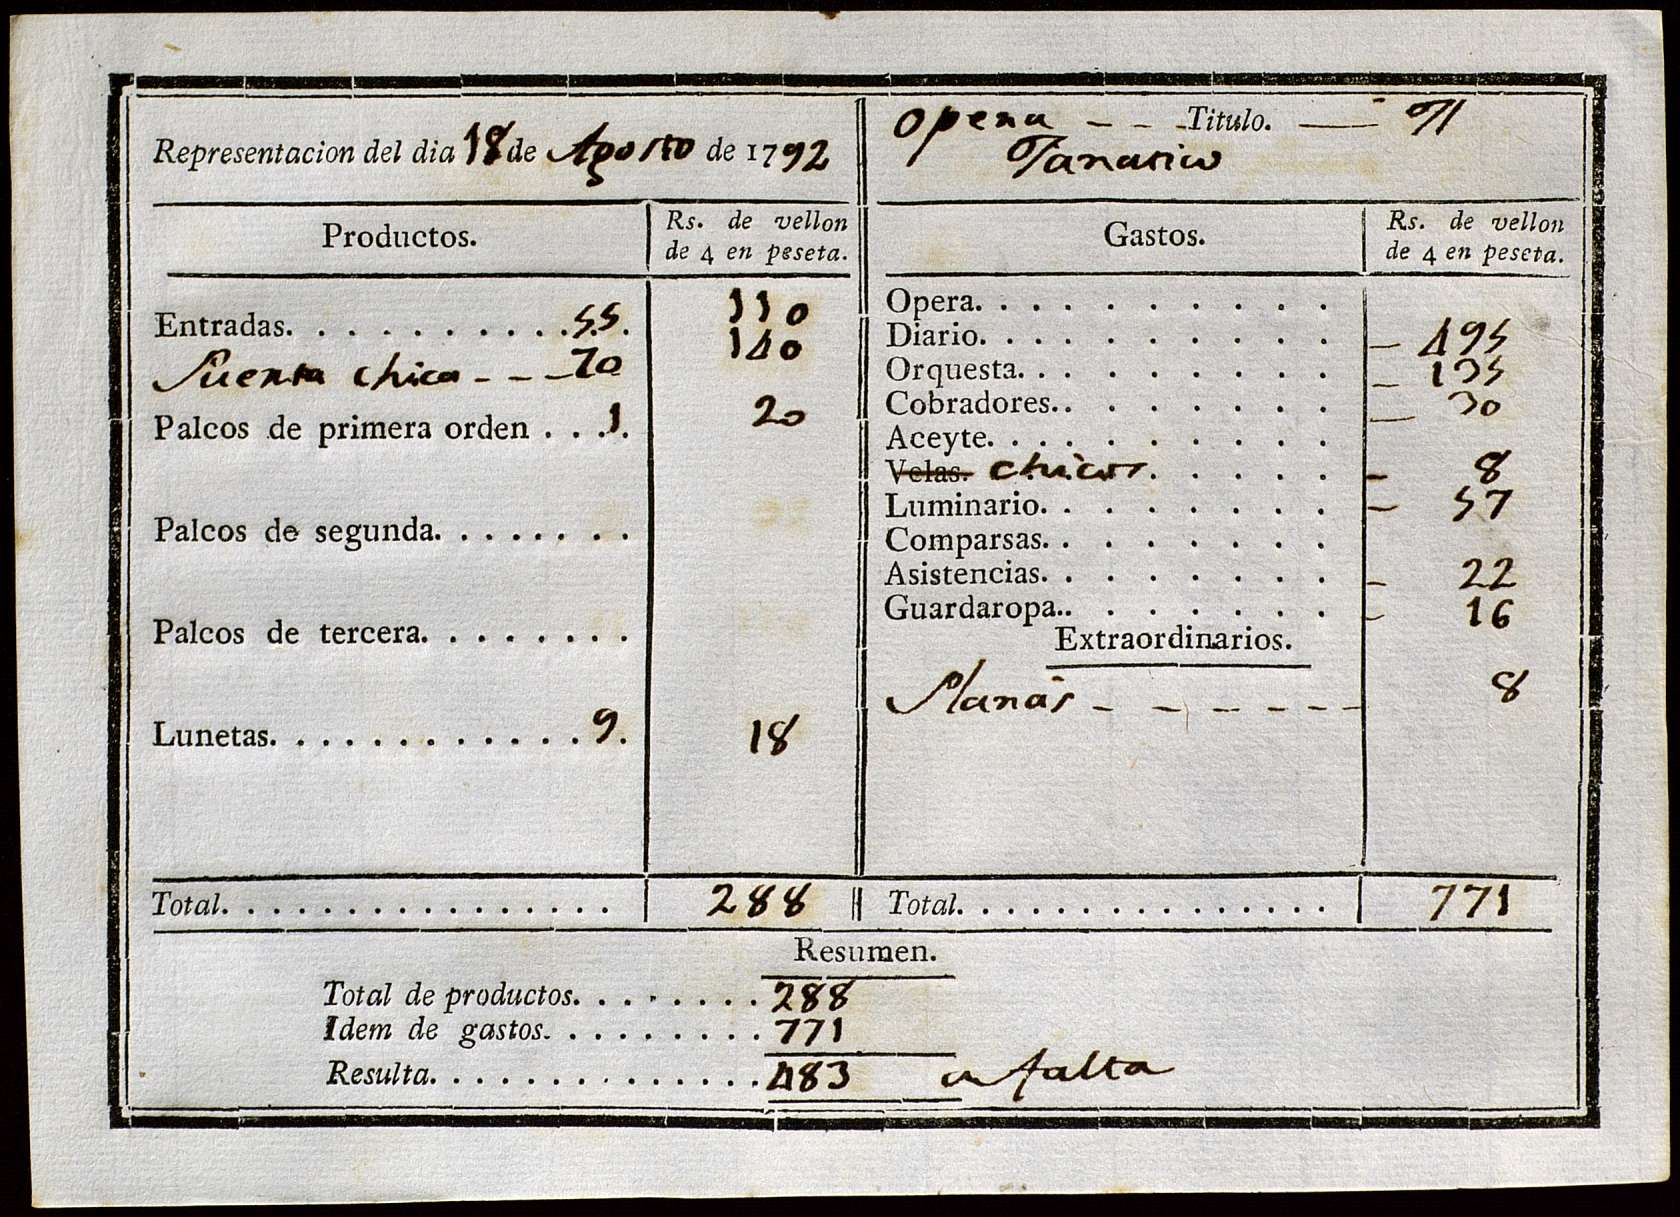 Representacion del dia 18 de Agosto de 1792
Opera - - - Titulo. — Il
Fanatico
Productos.
Rs. de vellon
de 4 en peseta.
Entradas. . . . . . . . . . .55. 110
Puerta chica - - - 70 140
Palcos de primera orden . . .1. 20
Palcos de segunda. . . . . . . .
Palcos de tercera. . . . . . . .
Lunetas. . . . . . . . . . . . 9. 18
Total. . . . . . . . . . . . . . . . 288
Gastos.
Rs. de vellon
de 4 en peseta.
Opera. . . . . . . . . . .
Diario. . . . . . . . . . . - 495
Orquesta. . . . . . . . . . - 135
Cobradores.. . . . . . . - 30
Aceyte. . . . . . . . . . .
Velas. chicos . . . . . - 8
Luminario. . . . . . . . - 57
Comparsas. . . . . . . .
Asistencias. . . . . . . . - 22
Guardaropa.. . . . . . . - 16
Extraordinarios.
Planas - - - - - - 8
Total. . . . . . . . . . . . . . . 771
Resumen.
Total de productos. . . . . . . . 288
Idem de gastos. . . . . . . . . 771
Resulta. . . . . . . . . . . . . . 483 en falta